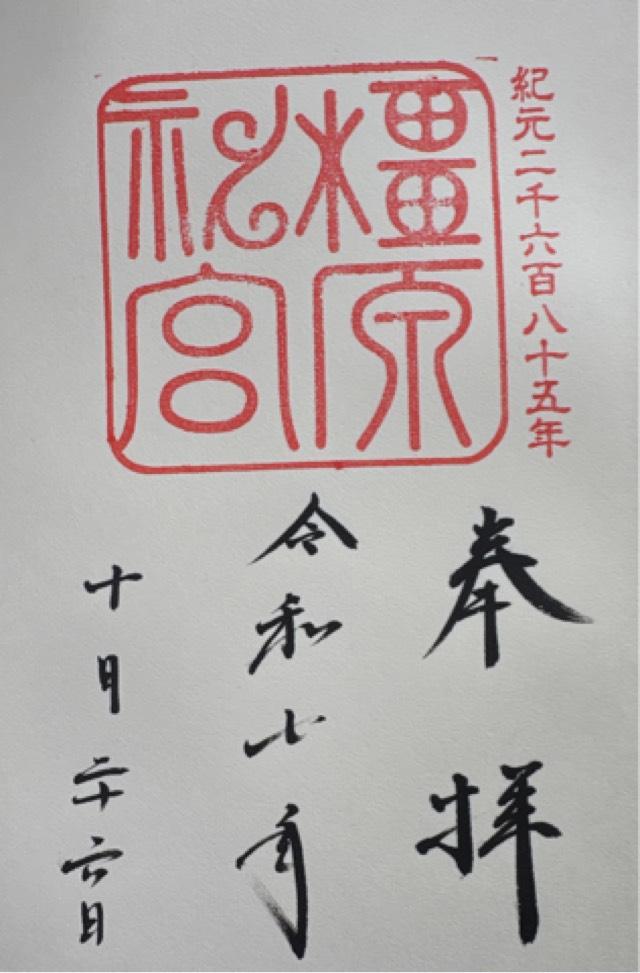 紀元二千六百八十五年
橿原
神宮
奉拝
令和七年
十月二十六日